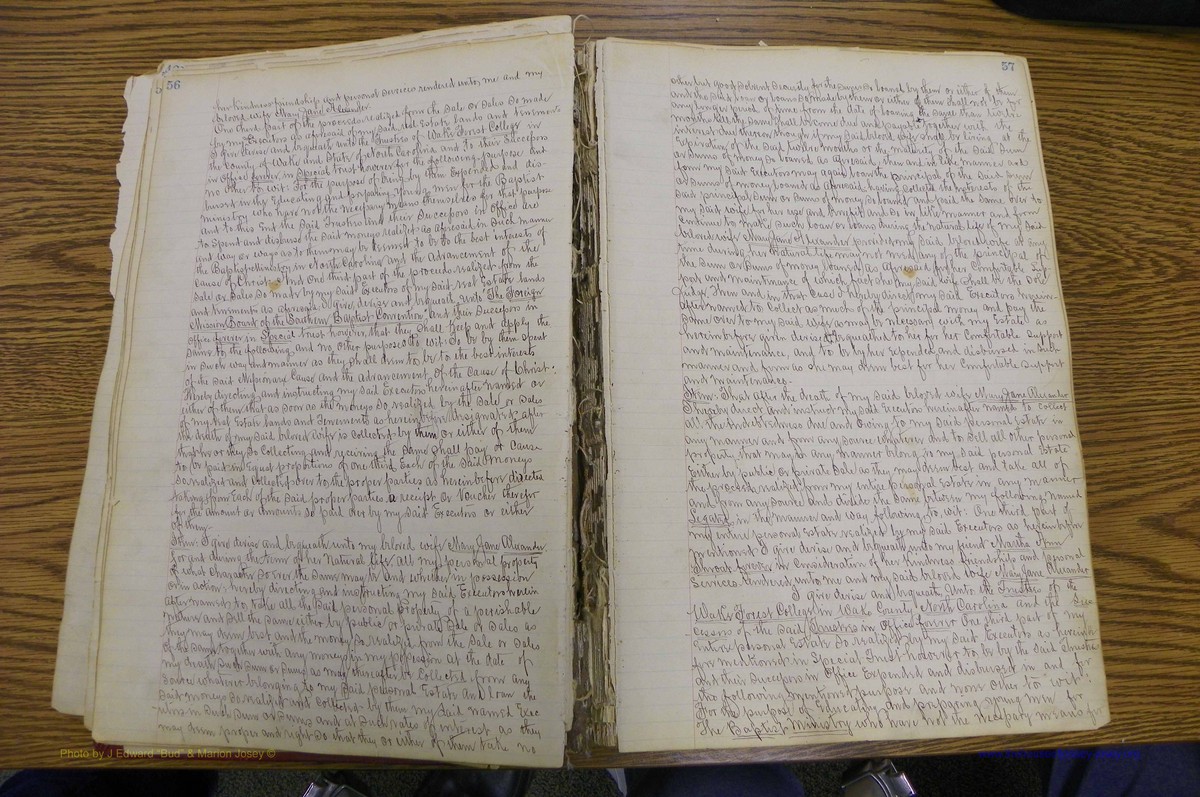 56
her kindness friendship and personal services rendered unto me and my
beloved wife Mary Jane Alexander.
One third part of the proceeds realized from the Sale or Sales So made
by my Executors as aforesaid of my Said real Estate lands and tenements
I give devise and bequeath unto the Trustees of Wake Forest College in
the County of Wake and State of North Carolina and to their Successors
in office forever in Special trust however for the following purpose and
no other to wit: For the purpose of being by them Expended and dis-
bursed in the Educating and preparing Young men for the Baptist
ministry who have not the necessary means themselves for that purpose
and to this End the Said Trustees and their Successors in office are
to Spent and disburse the Said moneys realized as aforesaid in Such manner
and way or ways as to them may be deemed to be to the best interests of
the Baptist ministry in North Carolina and the advancement of the
cause of Christ. And One third part of the proceeds realized from the
Sale or Sales So made by my Said Executors of my Said real Estate lands
and tenements as aforesaid I give, devise and bequeath unto "The Foreign
Mission Board of the Southern Baptist Convention" and their Successors in
office forever in Special trust however, that they Shall Keep and apply the
Same to the following, and no other purposes to wit: to be by them Spent
in Such way and manner as they Shall deem to be to the best interests
of the Said Missionary Cause and the advancement of the Cause of Christ.
Hereby directing and instructing my Said Executors hereinafter named or
either of them that as soon as the moneys So realized by the Sale or Sales
of my real Estate lands and tenements as hereinbefore designated after
the death of my Said beloved wife is Collected by them or either of them
that he or they So Collecting and receiving the Same Shall pay or Cause
to be paid in Equal proportions of one third Each of the Said moneys
So realized and collected over to the proper parties as hereinbefore directed
taking from Each of the Said proper parties a receipt or Voucher therefor
for the amount or amounts So paid over by my Said Executors or either
of them.
Item: I give devise and bequeath unto my beloved wife Mary Jane Alexander
for and during the term of her natural life all my personal property
of what Character Soever the Same may be and whether in possession
or in action hereby directing and instructing my Said Executors herein
after named to take all the Said personal Property of a perishable
nature and Sell the Same either by public or private Sale or Sales as
they may deem best and the money So realized from the Sale or Sales
of the Same together with any moneys in my possession at the date of
my death Such Sum or Sums as may thereafter be Collected from any
Source whatever belonging to my Said personal Estate and loan the
Said moneys So realized and collected by them my Said named Exec
utors in Such Sum or Sums and at Such rates of interest as they
may deem proper and right So that they or either of them take no
57
other but good Solvent Security for the Sums So loaned by them or either of them
and the Said loan or loans So made by them or either of them Shall not be for
any longer period of time from the date of loaning the Same than twelve
months when the Same Shall become due and payable together with the
interest due thereon though if my Said beloved wife be living at the
Expiration of the Said twelve months or the maturity of the Said Sum
or Sums of money So loaned as aforesaid, then and in like manner and
form my Said Executors may again loan the principal of the Said Sum
or Sums of money loaned as aforesaid having Collected the interests of the
Said principal Sum or Sums of money So loaned and paid the Same over to
my Said wife for her use and benefit and So in like manner and form
Continue to make Such loan or loans during the natural life of my Said
beloved wife Mary Jane Alexander provided my Said beloved wife at any
time during her Natural life may not need any of the principal of
the Sum or Sums of money loaned as aforesaid for her Comfortable Sup
port and maintenance of which fact She my Said wife Shall be the Sole
Judge. Then and in that Case I hereby direct my Said Executors herein-
after named to Collect as much of the principal money and pay the
Same over to my Said wife as may be necessary with my Estate as
hereinbefore given devised & bequeathed to her for her Comfortable Support
and maintenance, and to be by her Expended and disbursed in Such
manner and form as She may deem best for her Comfortable Support
and maintenance.
Item: That after the death of my Said beloved wife Mary Jane Alexander
I hereby direct and instruct my Said Executors hereinafter named to Collect
all the Indebtedness due and owing to my Said personal Estate in
any manner and from any Source whatever and to Sell all other personal
property that may in any manner belong to my Said personal Estate
Either by public or private Sale as they may deem best and take all of
the proceeds realized from my Entire personal Estate in any manner
and from any Source and divide the Same between my following named
Legatees in the manner and way following, to wit: One third part of
my entire personal Estate So realized by my Said Executors as hereinbefore
mentioned I give devise and bequeath unto my friend Martha Ann
forever in Consideration of her Kindness Friendship and personal
Services rendered unto me and my Said beloved wife Mary Jane Alexander
I give devise and bequeath Unto the Trustees of the
Wake Forest College in Wake County North Carolina and the Suc-
cessors of the Said Trustees in Office forever One third part of my
entire personal Estate So realized by my Said Executors as herein
before mentioned in Special Trust however to be by the Said Trustees
and their Successors in Office Expended and disbursed in and for
the following Intents and purposes and none other to wit:
For the purpose of Educating and preparing young men for
The Baptist Ministry who have not the necessary means for
Photo by J Edward "Bud" & Marion Josey ©